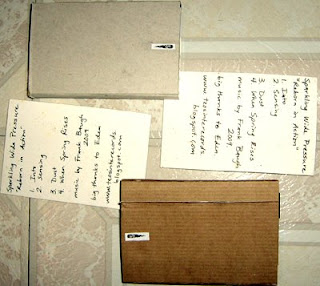 Sparkling Wide Pressure
"Reborn in Action"
1. Into
2 Sensing
3. Dust
4. When Spring Rises
music by Frank Baugh
2009.
big thanks to Eden
www.teosinterecords.
blogspot.com
Sparkling Wide Pressure
"Reborn in Action"
1. Into
2 Sensing
3. Dust
4. When Spring Rises
music by Frank Baugh
2009.
big thanks to Eden
www.teosinterecords.
blogspot.com